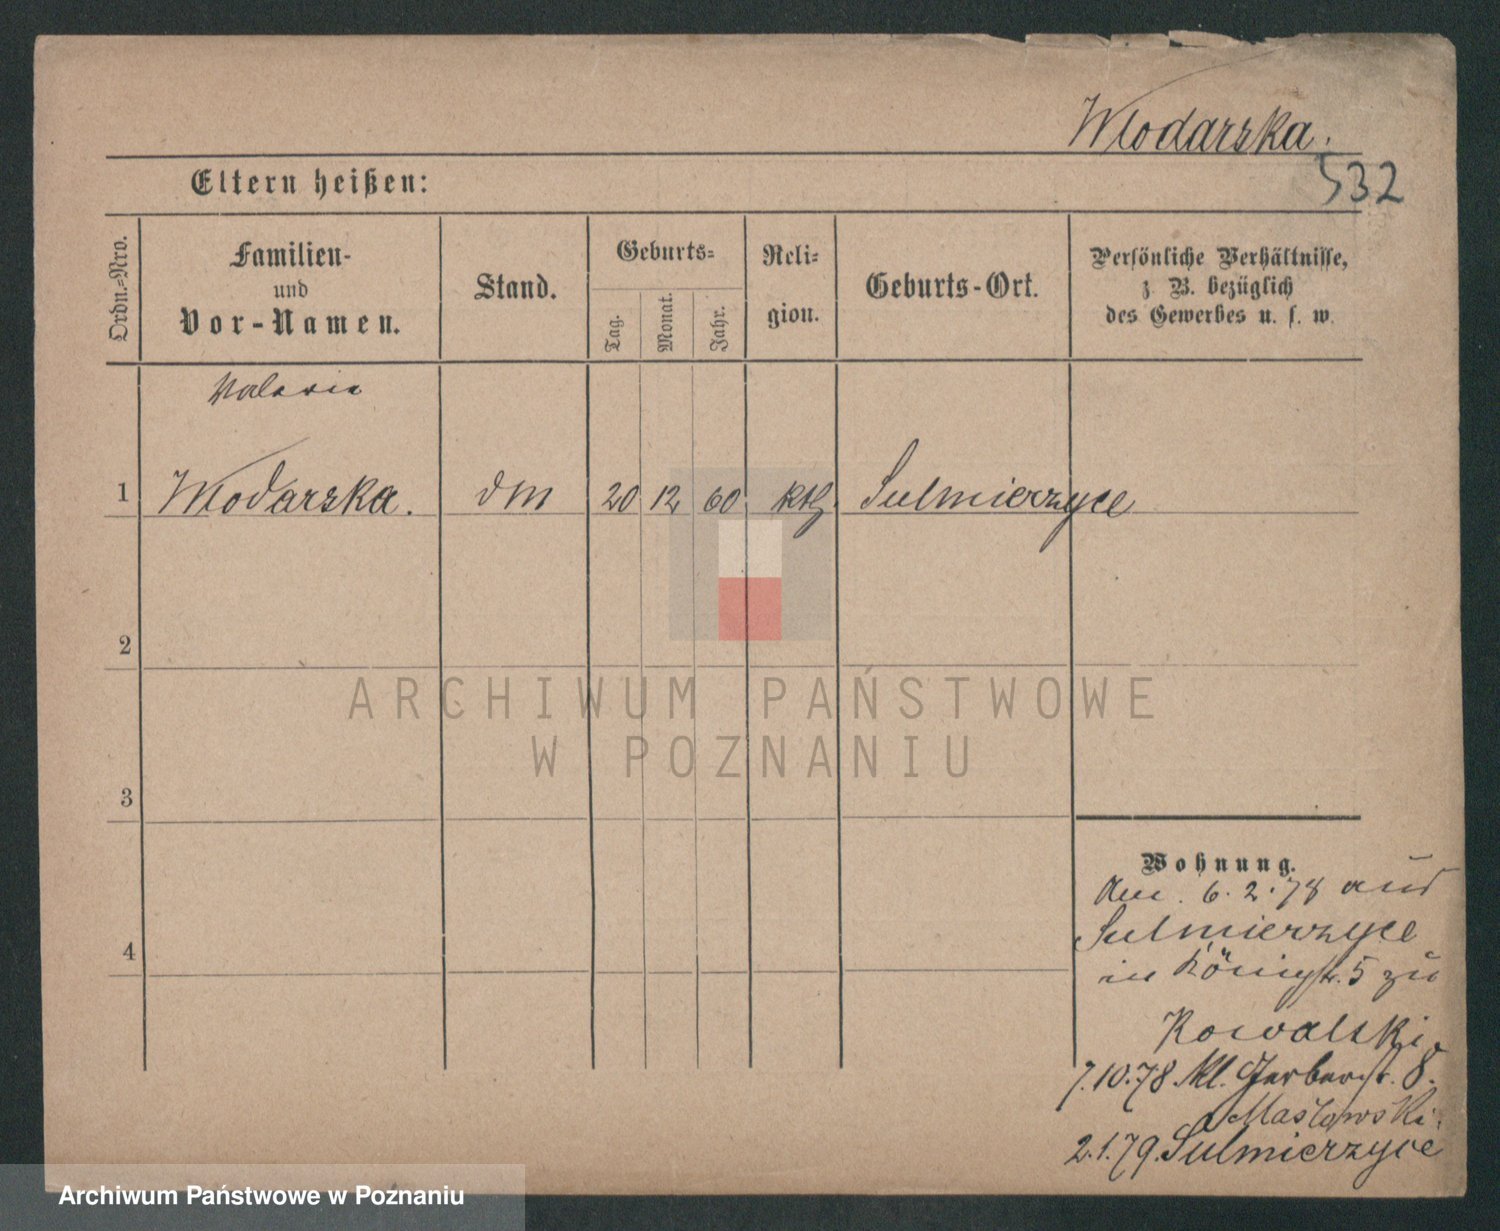 Wlodarska.
532
Eltern heißen:
Ordn.=Nro.
Familien-
und
Vor-Namen.
Stand.
Geburts=
Tag.
Monat.
Jahr.
Reli=
gion.
Geburts-Ort.
Persönliche Verhältnisse,
z. B. bezüglich
des Gewerbes u. s. w.
Valerie
1 Wlodarska. dM 20 12 60 kth. Sulmierzyce
2
3
4
Wohnung.
Am. 6. 2. 78 aus
Sulmierzyce
in Königstr. 5 zu
Kowalski.
7.10.78. Kl. Gerberstr. 8.
Masłowski.
2.1.79. Sulmierzyce
ARCHIWUM PAŃSTWOWE
W POZNANIU
Archiwum Państwowe w Poznaniu